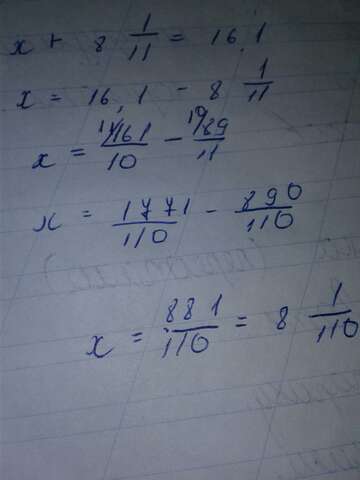 x + 8 1/11 = 16,1
x = 16,1 - 8 1/11
x = 11/161/10 - 10/89/11
x = 1771/110 - 890/110
x = 881/110 = 8 1/110